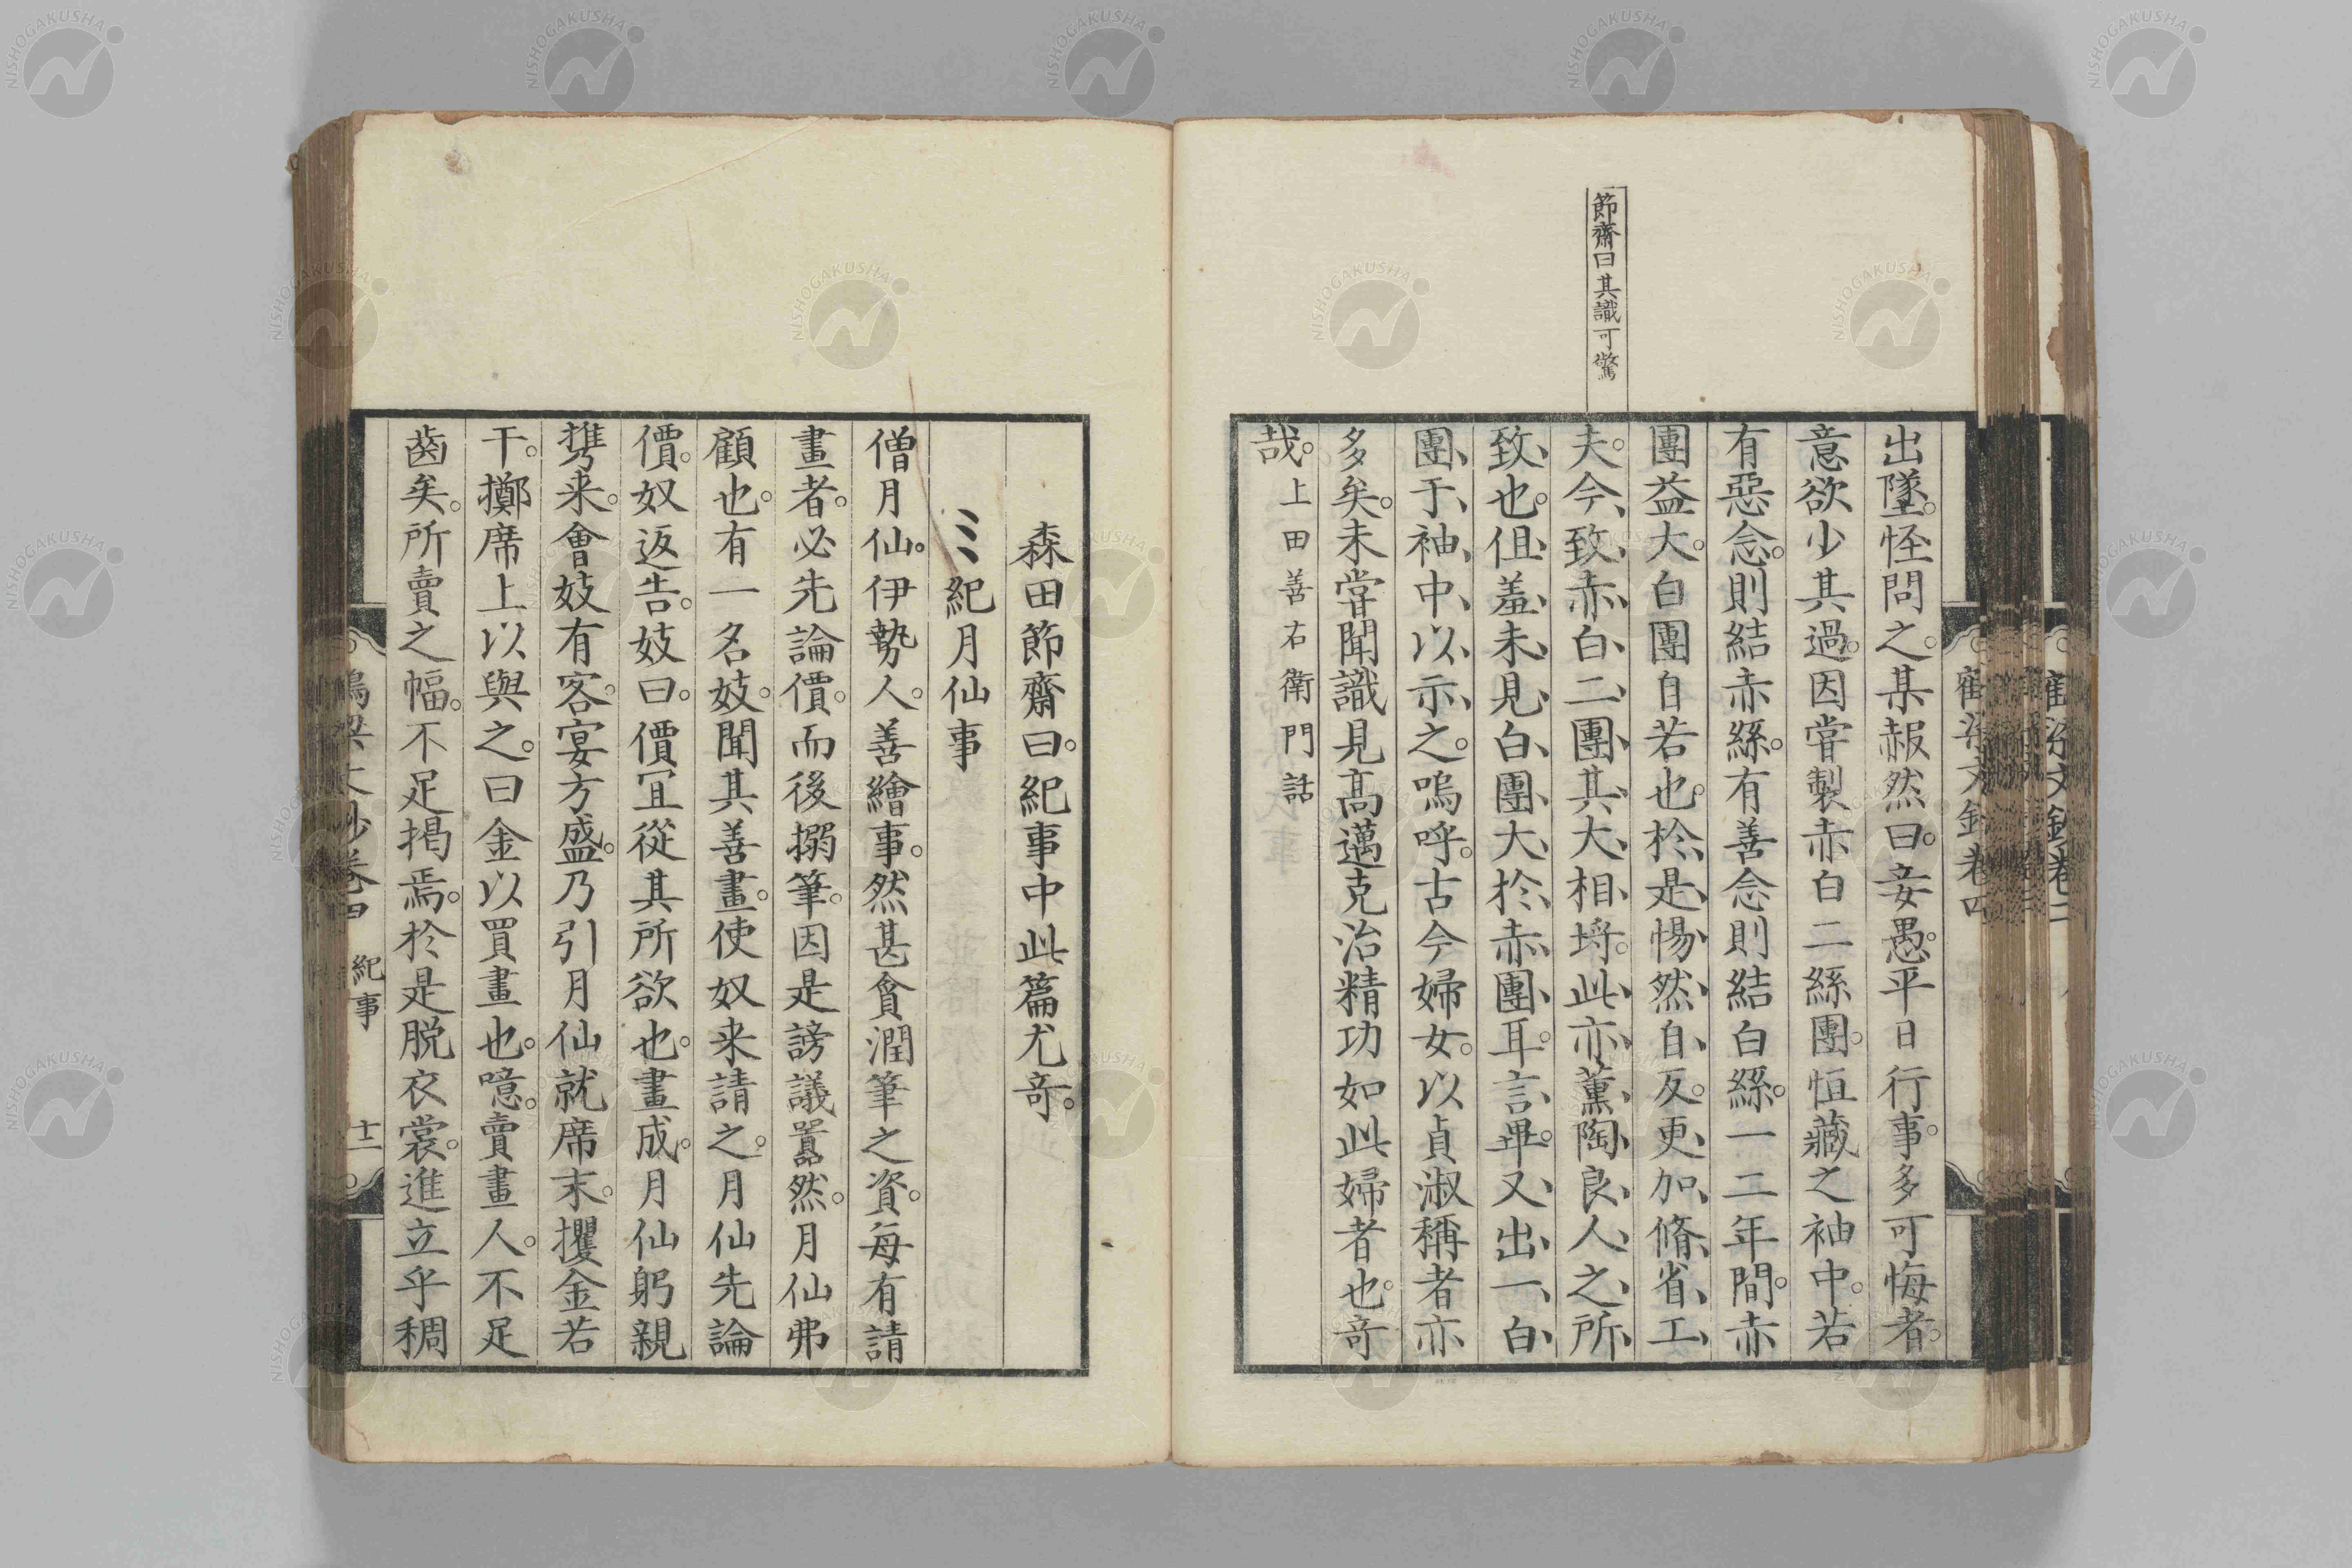 節齋曰其識可驚
出墜。怪問之。某赧然曰。妾愚。平日行事。多可悔者。
意欲少其過。因甞製赤白二絲團。恒藏之袖中。若
有惡念。則結赤絲。有善念則結白絲。一二年間。赤
團益大。白團自若也。於是惕然自反。更加脩省工
夫。今致赤白二團其大相埒。此亦薫陶良人之所
致也。但羞未見白團大於赤團耳。言畢。又出一白
團于袖中以示之。嗚呼。古今婦女。以貞淑稱者亦
多矣。未甞聞識見高邁克治精功如此婦者也。奇
哉。上田善右衛門話
鶴梁文鈔卷四
森田節齋曰。紀事中此篇尤奇。
紀月仙事
僧月仙。伊勢人。善繪事。然甚貪潤筆之資。每有請
畫者。必先論價。而後搦筆。因是謗議囂然。月仙弗
顧也。有一名妓。聞其善畫。使奴来請之。月仙先論
價。奴返告。妓曰。價宜從其所欲也。畫成。月仙躬親
携来。會妓有客。宴方盛。乃引月仙就席末。攫金若
干。擲席上以與之。曰金以買畫也。噫。賣畫人。不足
齒矣。所賣之幅。不足掲焉。於是脱衣裳。進立乎稠
鶴梁文鈔卷四 紀事 十二